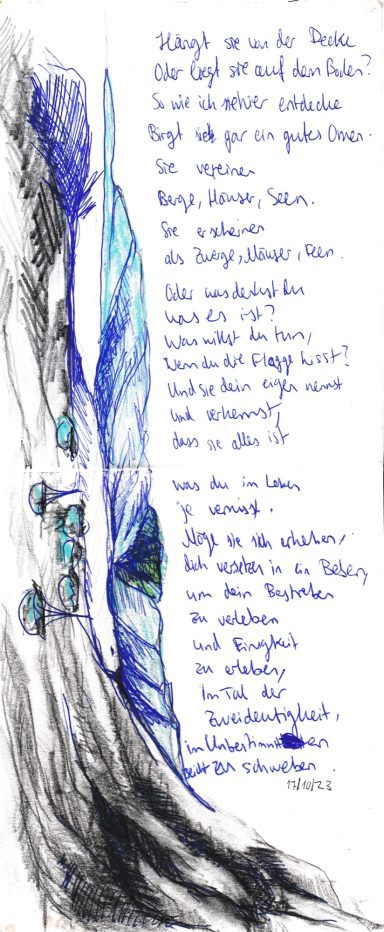 Hängt sie von der Decke
Oder liegt sie auf dem Boden?
So wie ich sie hier entdecke
Birgt sie gar ein gutes Omen.
Sie vereinen
Berge, Häuser, Seen.
Sie erscheinen
als Zwerge, Mäuser, Feen.
Oder was denkst du
was es ist?
Was willst du tun,
Wenn du die Flagge hisst?
Und sie dein eigen nennst
und verkennst,
dass sie alles ist
was du im Leben
je vermisst.
Möge sie sich erheben,
dich versetzen in ein Beben,
um dein Bestreben
zu verleben
und Einigkeit
zu erleben,
Im Tal der
Zweideutigkeit,
im Unbestimmten
zu schweben.
17/10/23